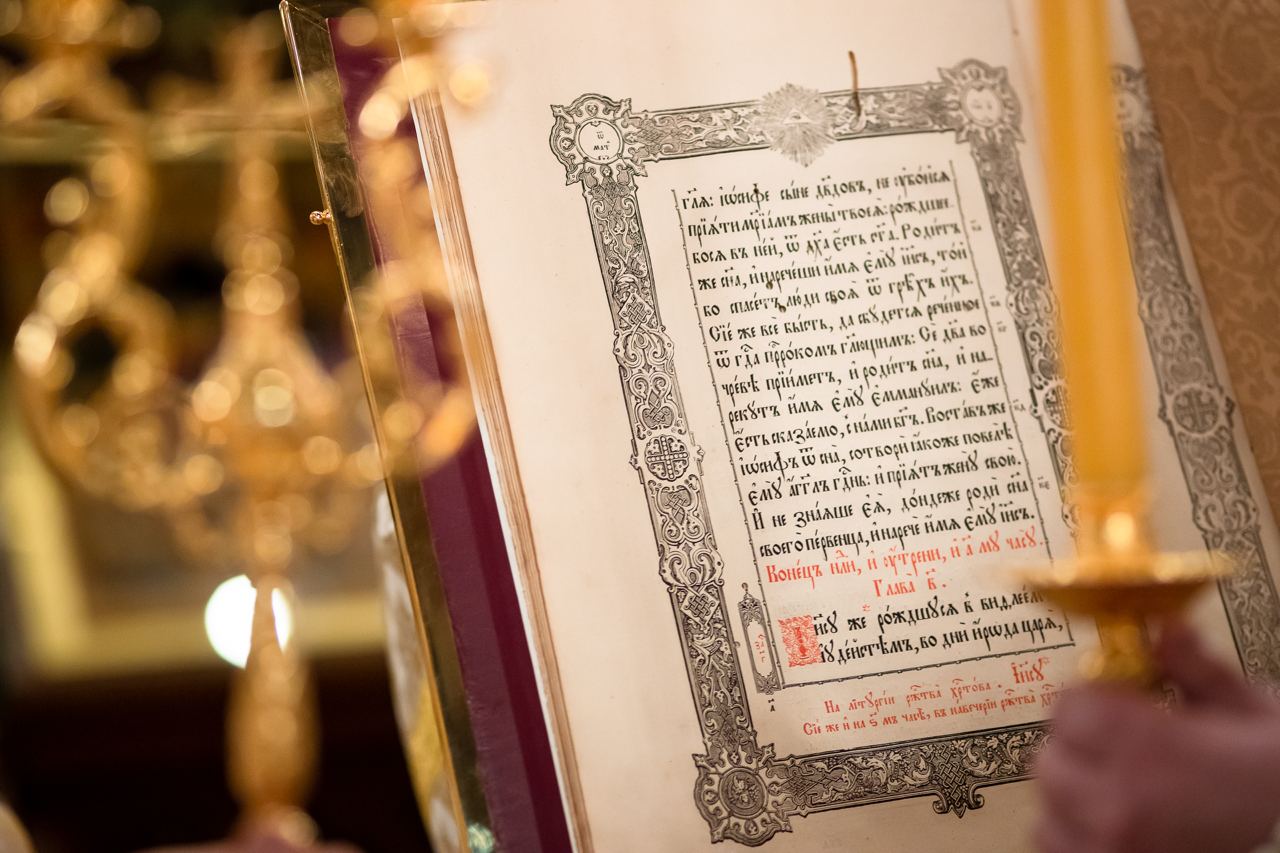 ѿ
матѳ
гл҃я: іѡ́сифе сы́не дв҃довъ, не ᲂу҆бо́йсѧ
прїѧ́ти мр҃їа́мъ жены̀ твоеѧ̀: ро́ждше-
еѧ бо сѧ въ не́й, ѿ дх҃а є҆́сть ст҃а. Роди́тъ
же сн҃а, и҆ нарече́ши и҆́мѧ є҆мꙋ̀ і҆и҃съ, то́й
бо спасе́тъ лю́ди своѧ̀ ѿ грѣ̑хъ и҆́хъ.
Сїе́ же всѐ бы́сть, да сбꙋ́детсѧ рече́нное
ѿ гдⷭ҇а прⷪ҇ро́комъ гл҃ющимъ: Сѐ дв҃а во
чре́вѣ прїи́метъ, и҆ роди́тъ сн҃а, и҆ на-
рекꙋ́тъ и҆́мѧ є҆мꙋ̀ є҆мманꙋи́лъ: є҆́же
є҆́сть сказа́емо, съ на́ми бг҃ъ. Воста́въ же
і҆ѡ́сифъ ѿ сна̀, сотворѝ ꙗ҆́коже повелѣ̀
є҆мꙋ̀ а҆́гг҃лъ гдⷭ҇нь: и҆ прїѧ́тъ женꙋ̀ свою̀.
И҆ не зна́ѧше є҆ѧ̀, до́ндеже родѝ сн҃а
своего̀ пе́рвенца, и҆ наречѐ и҆́мѧ є҆мꙋ̀ і҆и҃съ.
Коне́цъ нлⷧ҇и, и҆ ᲂу҆́трени, и҆ а҃ мꙋ часꙋ̀.
Глава̀ в҃.
І҆и҃сꙋ же ро́ждшꙋсѧ в виѳлее́мѣ
і҆ꙋде́йстѣмъ, во дни̑ и҆́рѡда царѧ̀,
На лїтꙋргі́и ржⷭ҇тва̀ хрⷭ҇то́ва. І҆и҃сꙋ
Сїе́ же и҆ на ѕ҃ мъ часѣ̀, въ наве́черїи ржⷭ҇тва̀